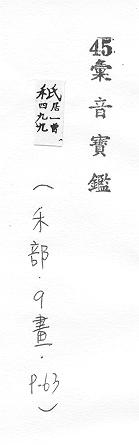 45彙音寶鑑
秖
居一曾
四九九
(禾部.9畫.P.63)